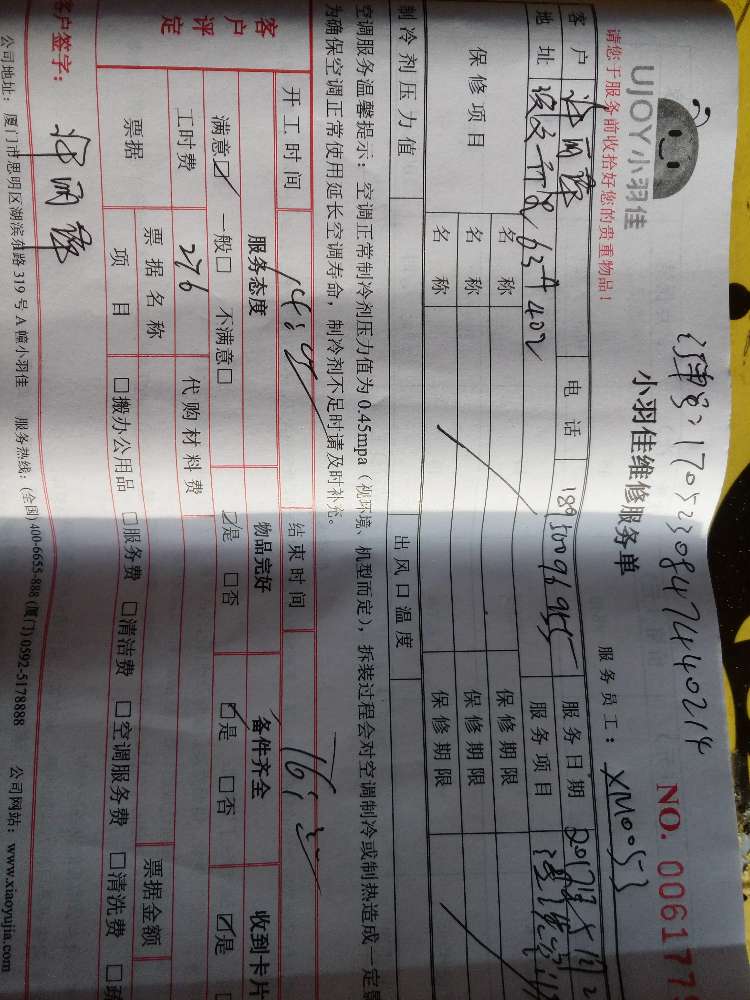 UJOY小羽佳
请您于服务前收拾好您的贵重物品！
小羽佳维修服务单
17052308474440214
服务员工： XM0053
NO. 006177
客户 电话 服务日期
地址 63# 402 服务项目
保修项目 名称 保修期限
名称 保修期限
名称 保修期限
制冷剂压力值 出风口温度
空调服务温馨提示：空调正常制冷剂压力值为0.45mpa（视环境、机型而定），拆装过程会对空调制冷或制热造成一定
为确保空调正常使用延长空调寿命，制冷剂不足时请及时补充。
开工时间 结束时间
客户评定 服务态度 物品完好 备件齐全 收到卡片
满意☑ 一般□ 不满意□ ☑是 □否 ☑是 □否 ☑是
工时费 276 代购材料费
票据 票据名称 票据金额
项目 □搬办公用品 □服务费 □清洁费 □空调服务费 □清洗费
客户签字：
公司地址：厦门市思明区湖滨东路319号A幢小羽佳 服务热线：(全国) 400-6655-888 (厦门) 0592-5178888 公司网站：www.xiaoyujia.com